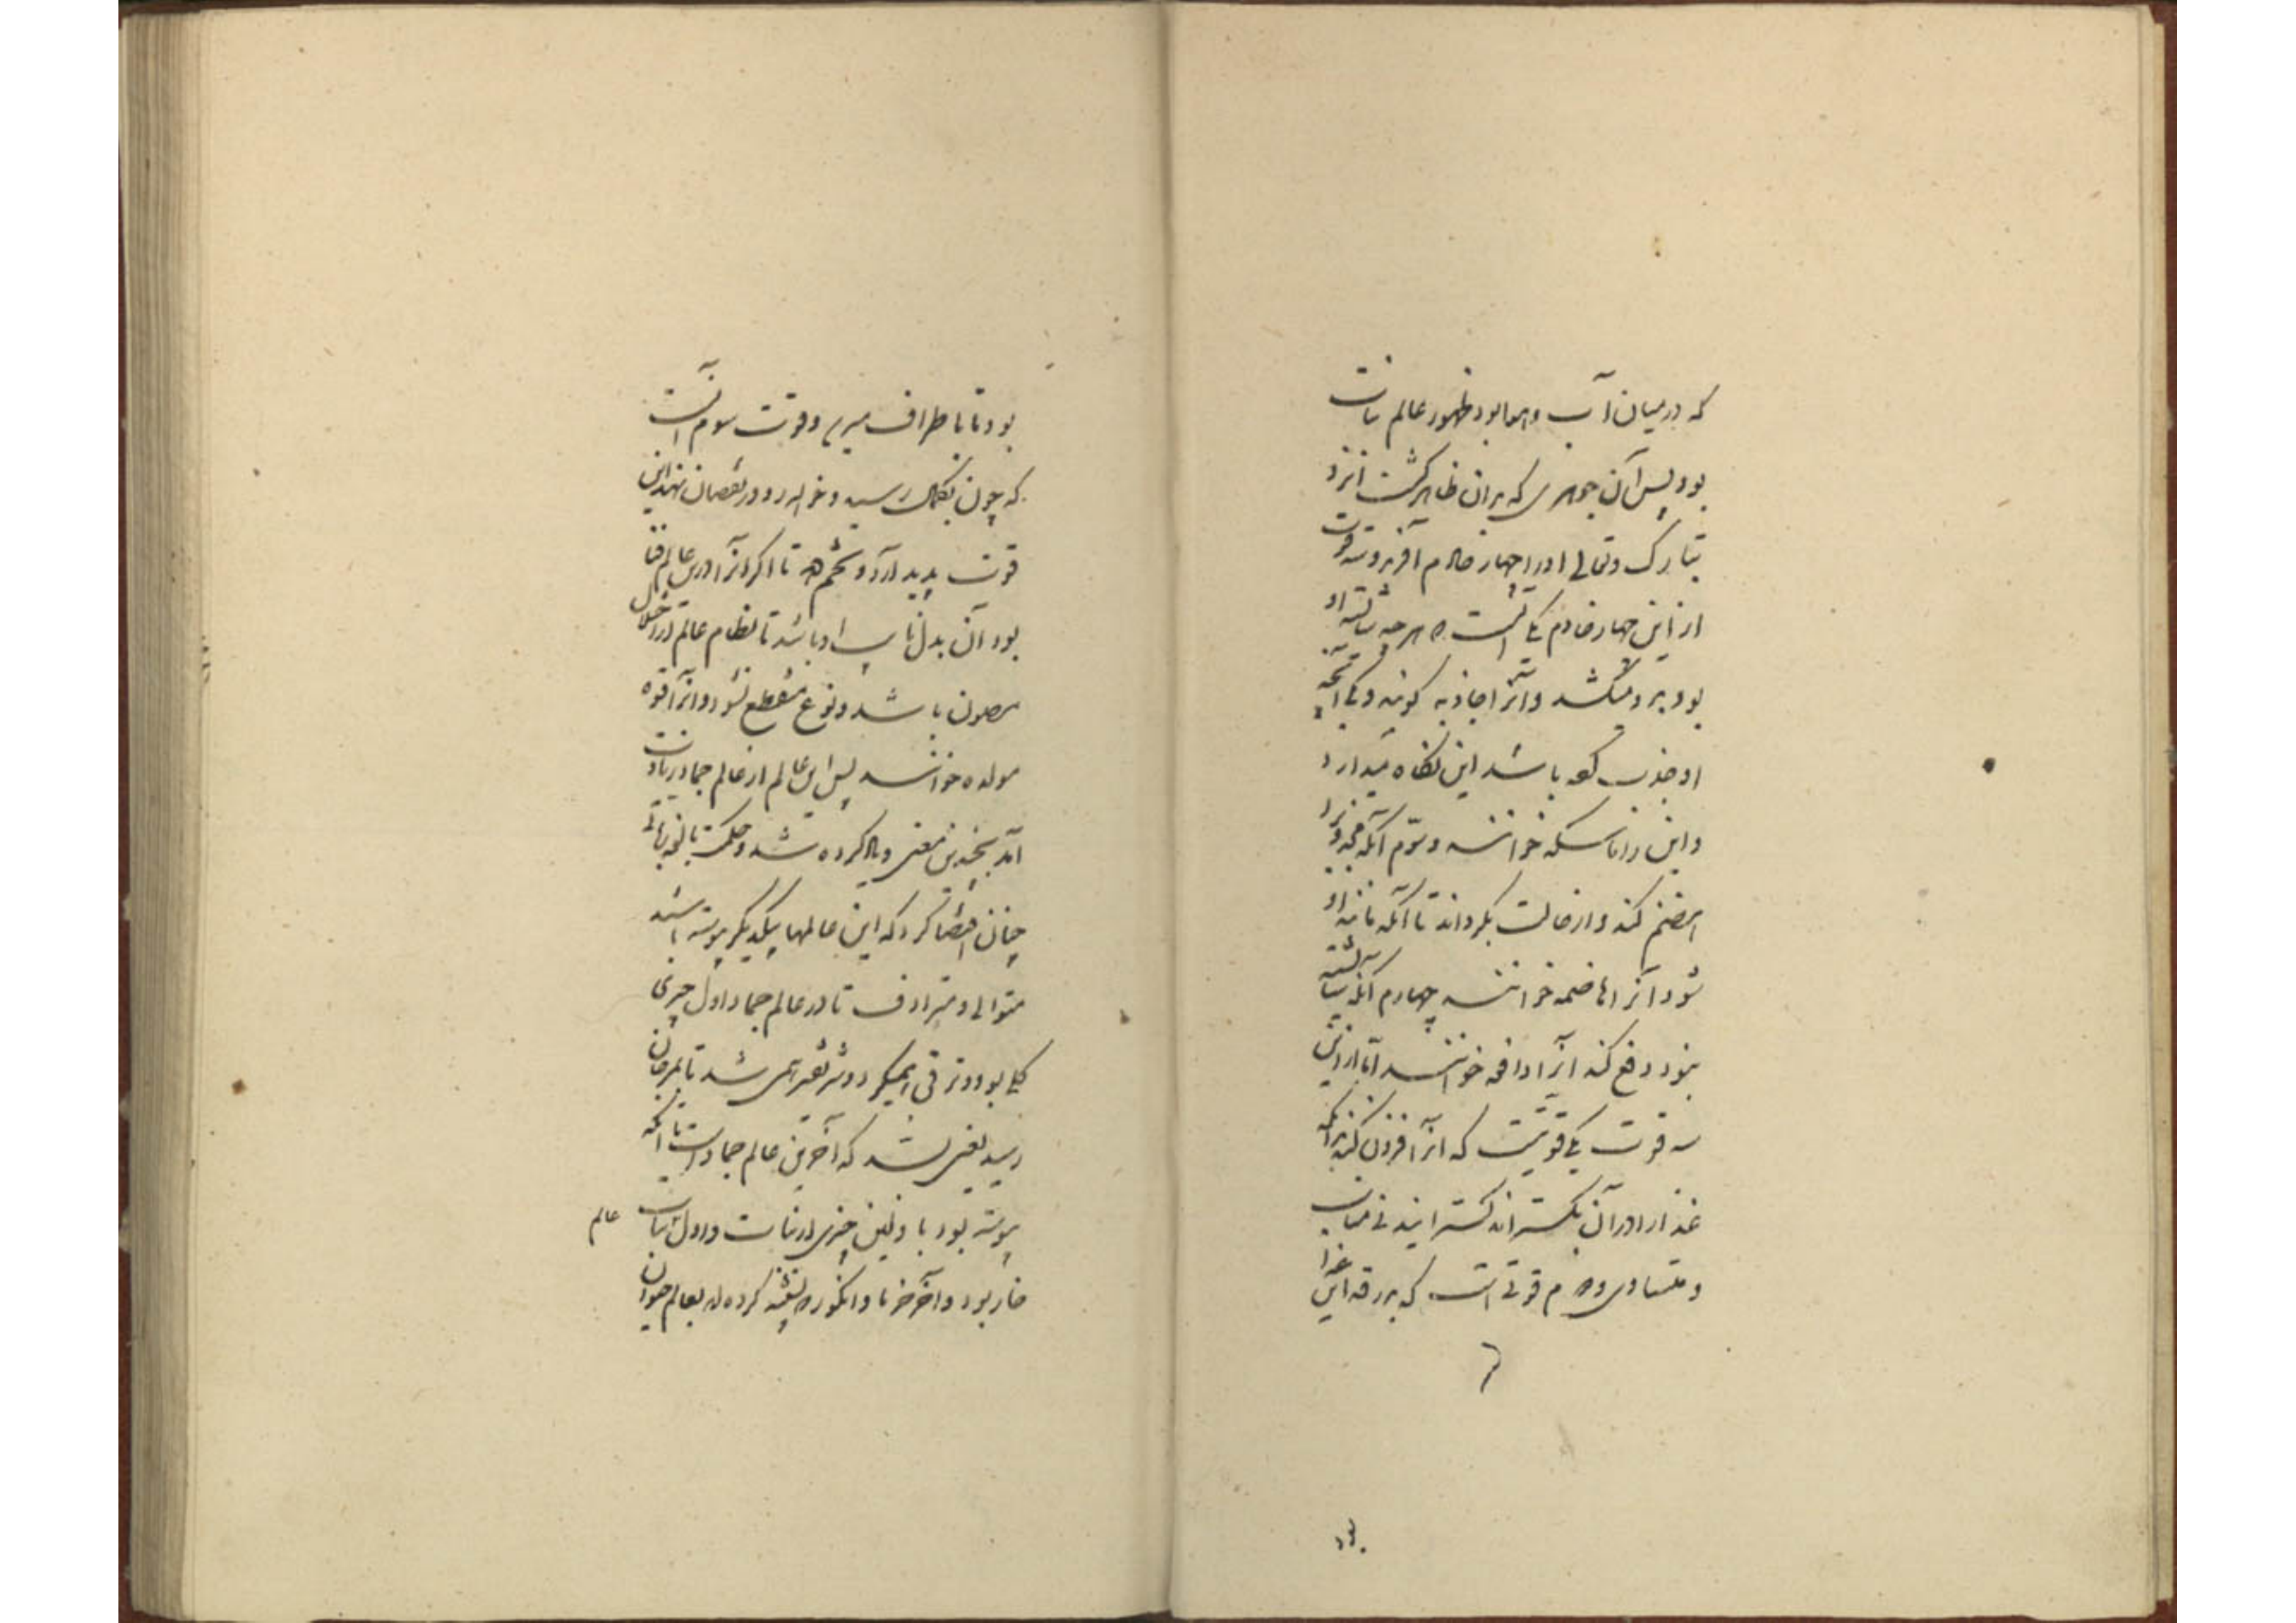 که در میان آب و هوا بود ظهور عالم نبات
بود پس آن جوهری که بدان ظاهر گشت ایزد
تبارک و تعالی او را چهار خادم آفرید و سه قوت
از این چهار خادم یکی آنست هر چه شایسته او
بود بدو میکشد و آنرا جاذبه گویند و یکی آنچه
او جذب کرده باشد این نگاه میدارد
و این را ماسکه خوانند و سوم آنکه مجذوب را
هضم کند و از حالت بگرداند تا آنکه مانند او
شود آنرا هاضمه خوانند چهارم آنکه ناشایسته
بود دفع کند آنرا دافعه خوانند اما از این
سه قوت یکی قوتیست که آنرا افزون کند بدانکه
غذا را در آن بگستراند گسترانیدنی متناسب
و متساوی دوم قوتی است که بدرقه این غذا
بود تا باطراف میرسد و قوت سوم آنست
که چون بکمال رسید و خواهد رو در نقصان نهد این
قوت پدید آرد و تخم دهد تا اگر آنرا در این عالم فنا
بود آن بدل نایب او باشد تا نظام عالم از اختلال
مصون باشد و نوع منقطع نشود و آنرا قوه
مولده خوانند پس این عالم از عالم جماد زیادت
آمد بچندین معنی که یاد کرده شد و حکمت بالغه ربانی
چنان اقتضا کرد که این عالمها بیکدیگر پیوسته باشد
متوالی و مترادف تا در عالم جماد اول چیزی
گلی بود و ترقی همیکرد و شریفتر همی شد تا بمرجان
رسید یعنی بسد که آخرین عالم جماد است تا آنکه
پیوسته بود باولین چیزی از نبات و اول نبات
عالم
خار بود و آخر خرما و انگور که تشبه کرده اند بعالم حیوان